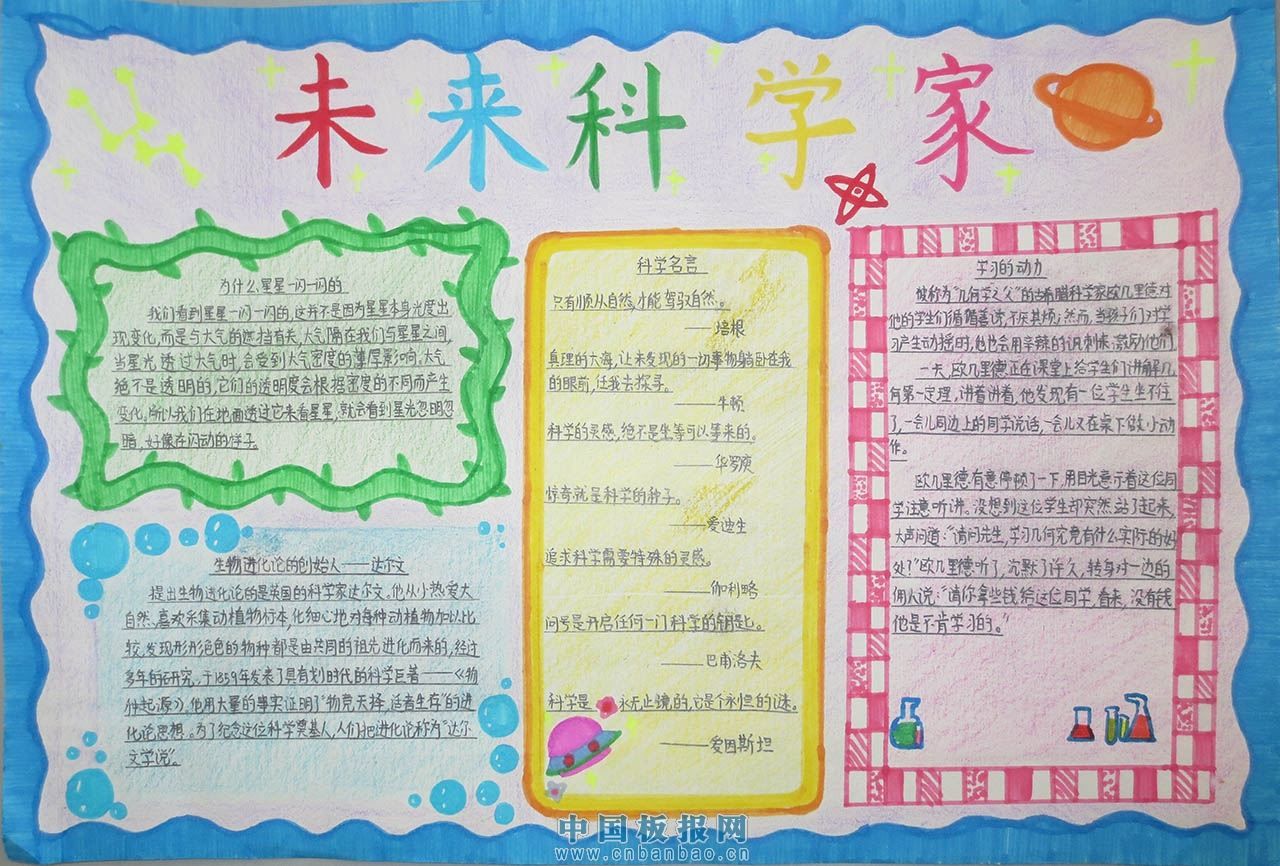 未来科学家
为什么星星一闪一闪的
我们看到星星一闪一闪的,这并不是因为星星本身光度出
现变化,而是与大气的遮挡有关,大气隔在我们与星星之间,
当星光透过大气时,会受到大气密度的薄厚影响,大气
绝不是透明的,它们的透明度会根据密度的不同而产生
变化,所以我们在地面透过它来看星星,就会看到星光忽明忽
暗,好像在闪动的样子。
生物进化论的创始人——达尔文
提出生物进化论的是英国的科学家达尔文。他从小热爱大
自然、喜欢采集动植物标本,化细心地对每种动植物加以比
较,发现形形色色的物种都是由共同的祖先进化而来的,经过
多年的研究,于1859年发表了具有划时代的科学巨著——《物
种起源》,他用大量的事实证明了"物竞天择,适者生存"的进
化论思想。为了纪念这位科学奠基人,人们把进化论称为"达尔
文学说"。
科学名言
只有顺从自然,才能驾驭自然。
——培根
真理的大海,让未发现的一切事物躺卧在我
的眼前,任我去探寻。
——牛顿
科学的灵感,绝不是坐等可以等来的。
——华罗庚
惊奇就是科学的种子。
——爱迪生
追求科学需要特殊的灵感。
——伽利略
问号是开启任何一门科学的钥匙。
——巴甫洛夫
科学是永无止境的,它是个永恒的谜。
——爱因斯坦
学习的动力
被称为"几何学之父"的古希腊科学家欧几里德对
他的学生们循循善诱,不厌其烦;然而,当孩子们对学
习产生动摇时,他也会用辛辣的讽刺来激励他们。
一天,欧几里德正在课堂上给学生们讲解几
何第一定理,讲着讲着,他发现有一位学生坐不住
了,一会儿同边上的同学说话,一会儿又在桌下做小动
作。
欧几里德有意停顿了一下,用目光意示着这位同
学注意听讲。没想到这位学生却突然站了起来,
大声问道:"请问先生,学习几何究竟有什么实际的好
处?"欧几里德听了,沉默了许久,转身对一边的
佣人说:"请你拿些钱给这位同学,看来,没有钱
他是不肯学习的。"
中国板报网
www.cnbanbao.cn